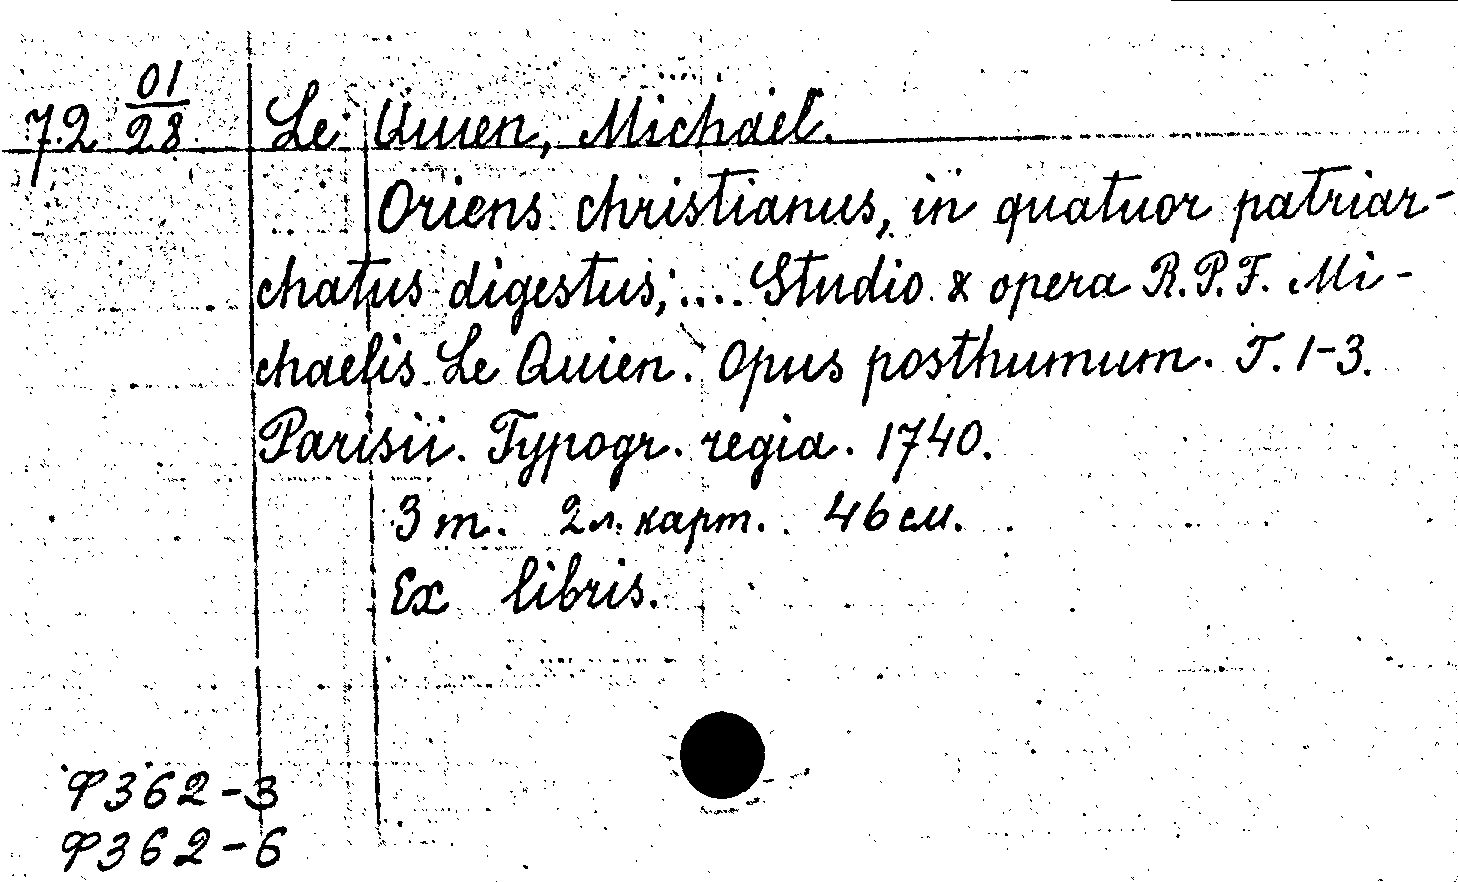 01
72 28 Le Quien, Michael.
Oriens christianus, in quatuor patriar-
chatus digestus; .... Studio & opera R.P.F. Mi-
chaelis Le Quien. Opus posthumum. T. 1-3.
Parisii. Typogr. regia. 1740.
3 т. 2 л. карт. 46 см.
Ex libris.
Ф362-3
Ф362-6